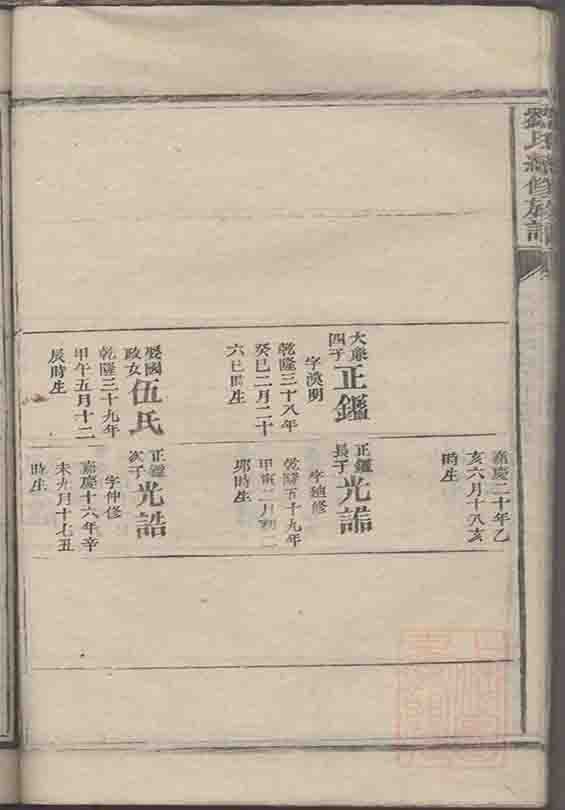 氏
修族譜
大
四子
正鑑
字漢明
乾隆三十八年
癸巳二月二十
六巳時生
娶國
政女
伍氏
乾隆三十九年
甲午五月十二
辰時生
嘉慶二十年乙
亥六月十八亥
時生
正鑑
長子
光誥
字廸修
乾隆五十九年
甲寅二月初二
卯時生
正鑑
次子
光誥
字仲修
嘉慶十六年辛
未九月十七丑
時生